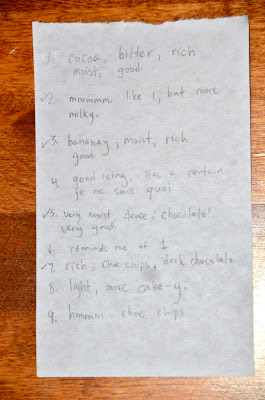 1. cocoa, bitter, rich
moist, good
✓2. mmmmm. like 1, but more
milky.
✓3. bananay, moist, rich
good
4. good icing. Has a certain
je ne sais quoi
✓5. very moist, dense, chocolate!
very good
6. reminds me of 1
✓7. rich, choc chips, dark chocolate
8. light, more cake-y.
9. hmmm. choc chips